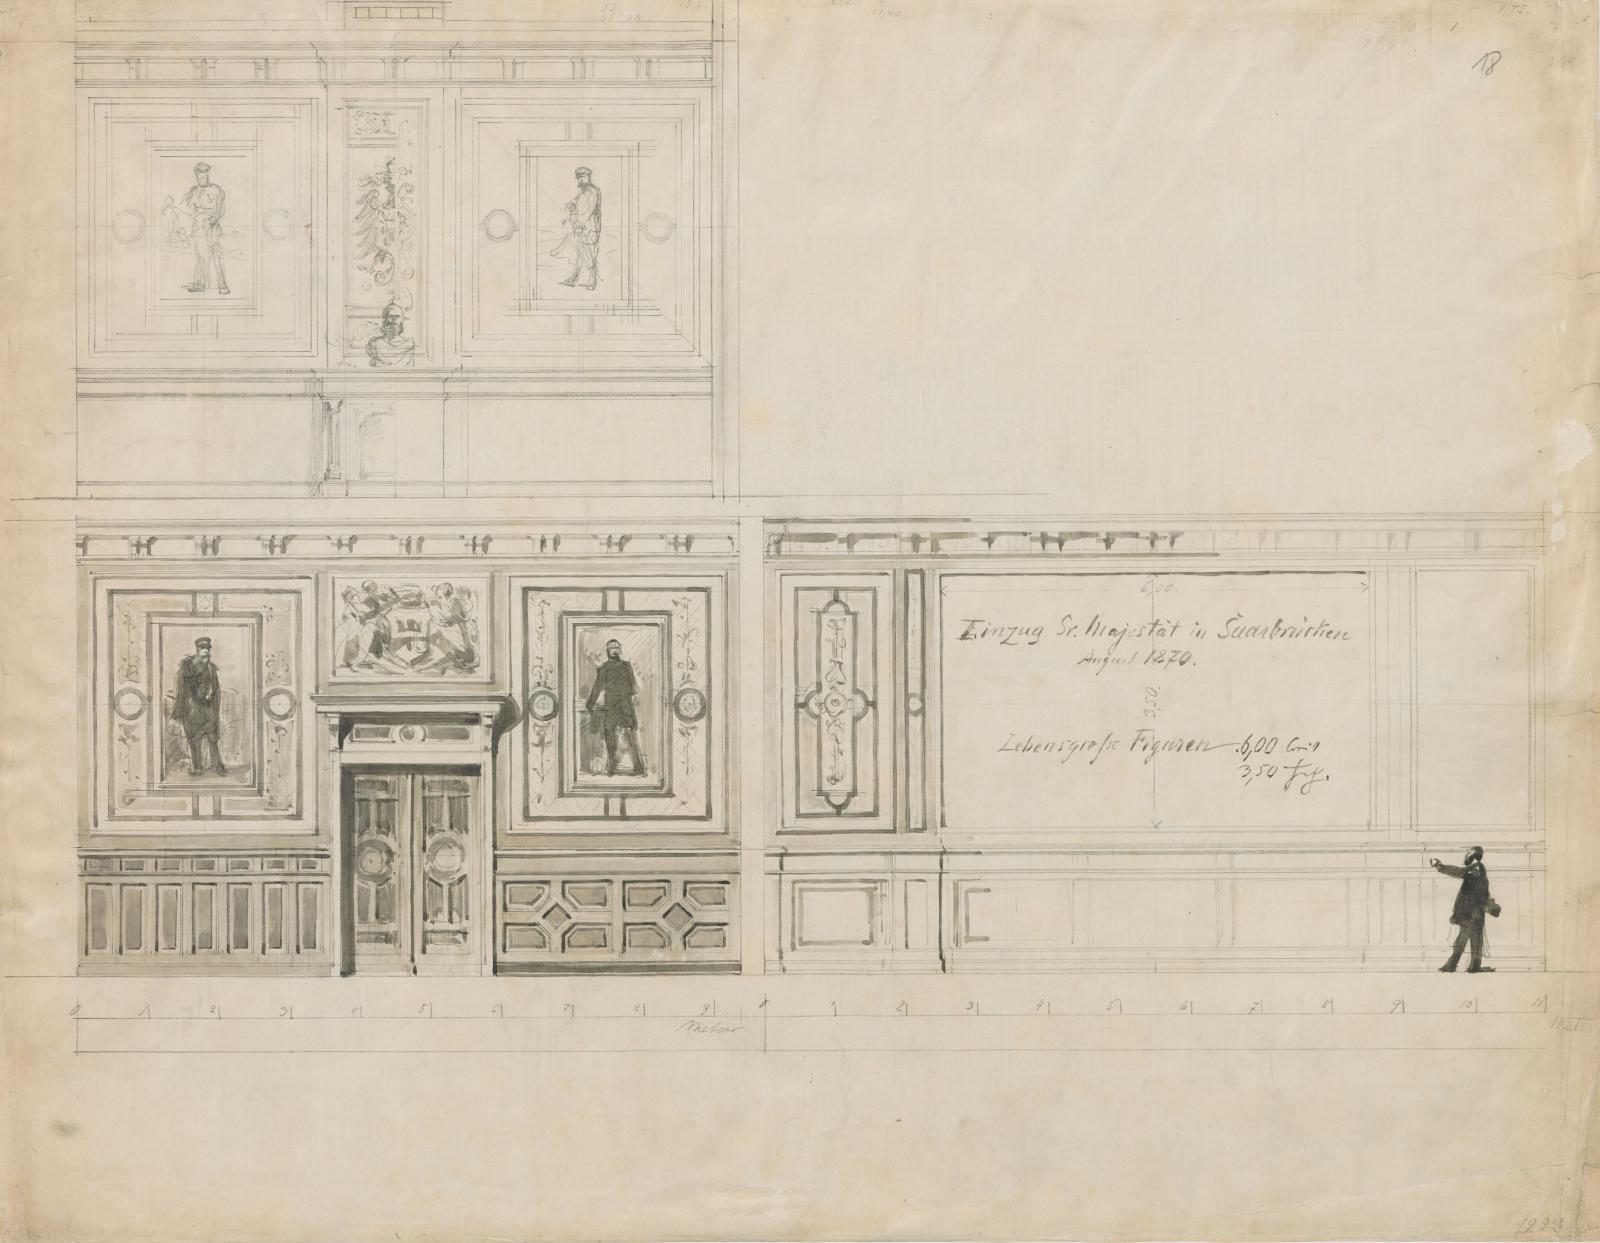 18
6,00
Einzug Sr. Majestät in Saarbrücken
August 1870.
3,50.
Lebensgroße Figuren 6,00
3,50
0 1 2 3 4 5 6 7 8 9
Meter
0 1 2 3 4 5 6 7 8 9 10 11